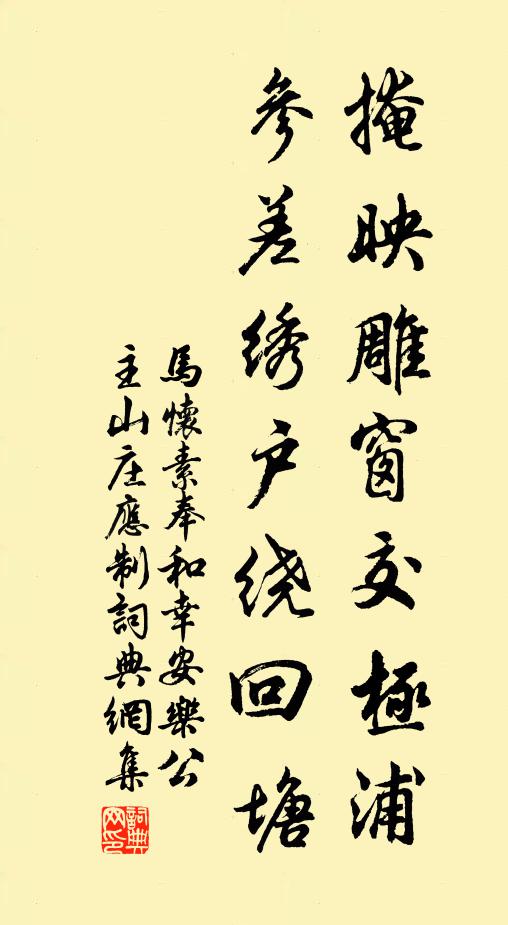 掩映雕窗交極浦
參差绣户绕回塘
馬懷素奉和幸安樂公
主山庄應制詞典網集
詞典
网印